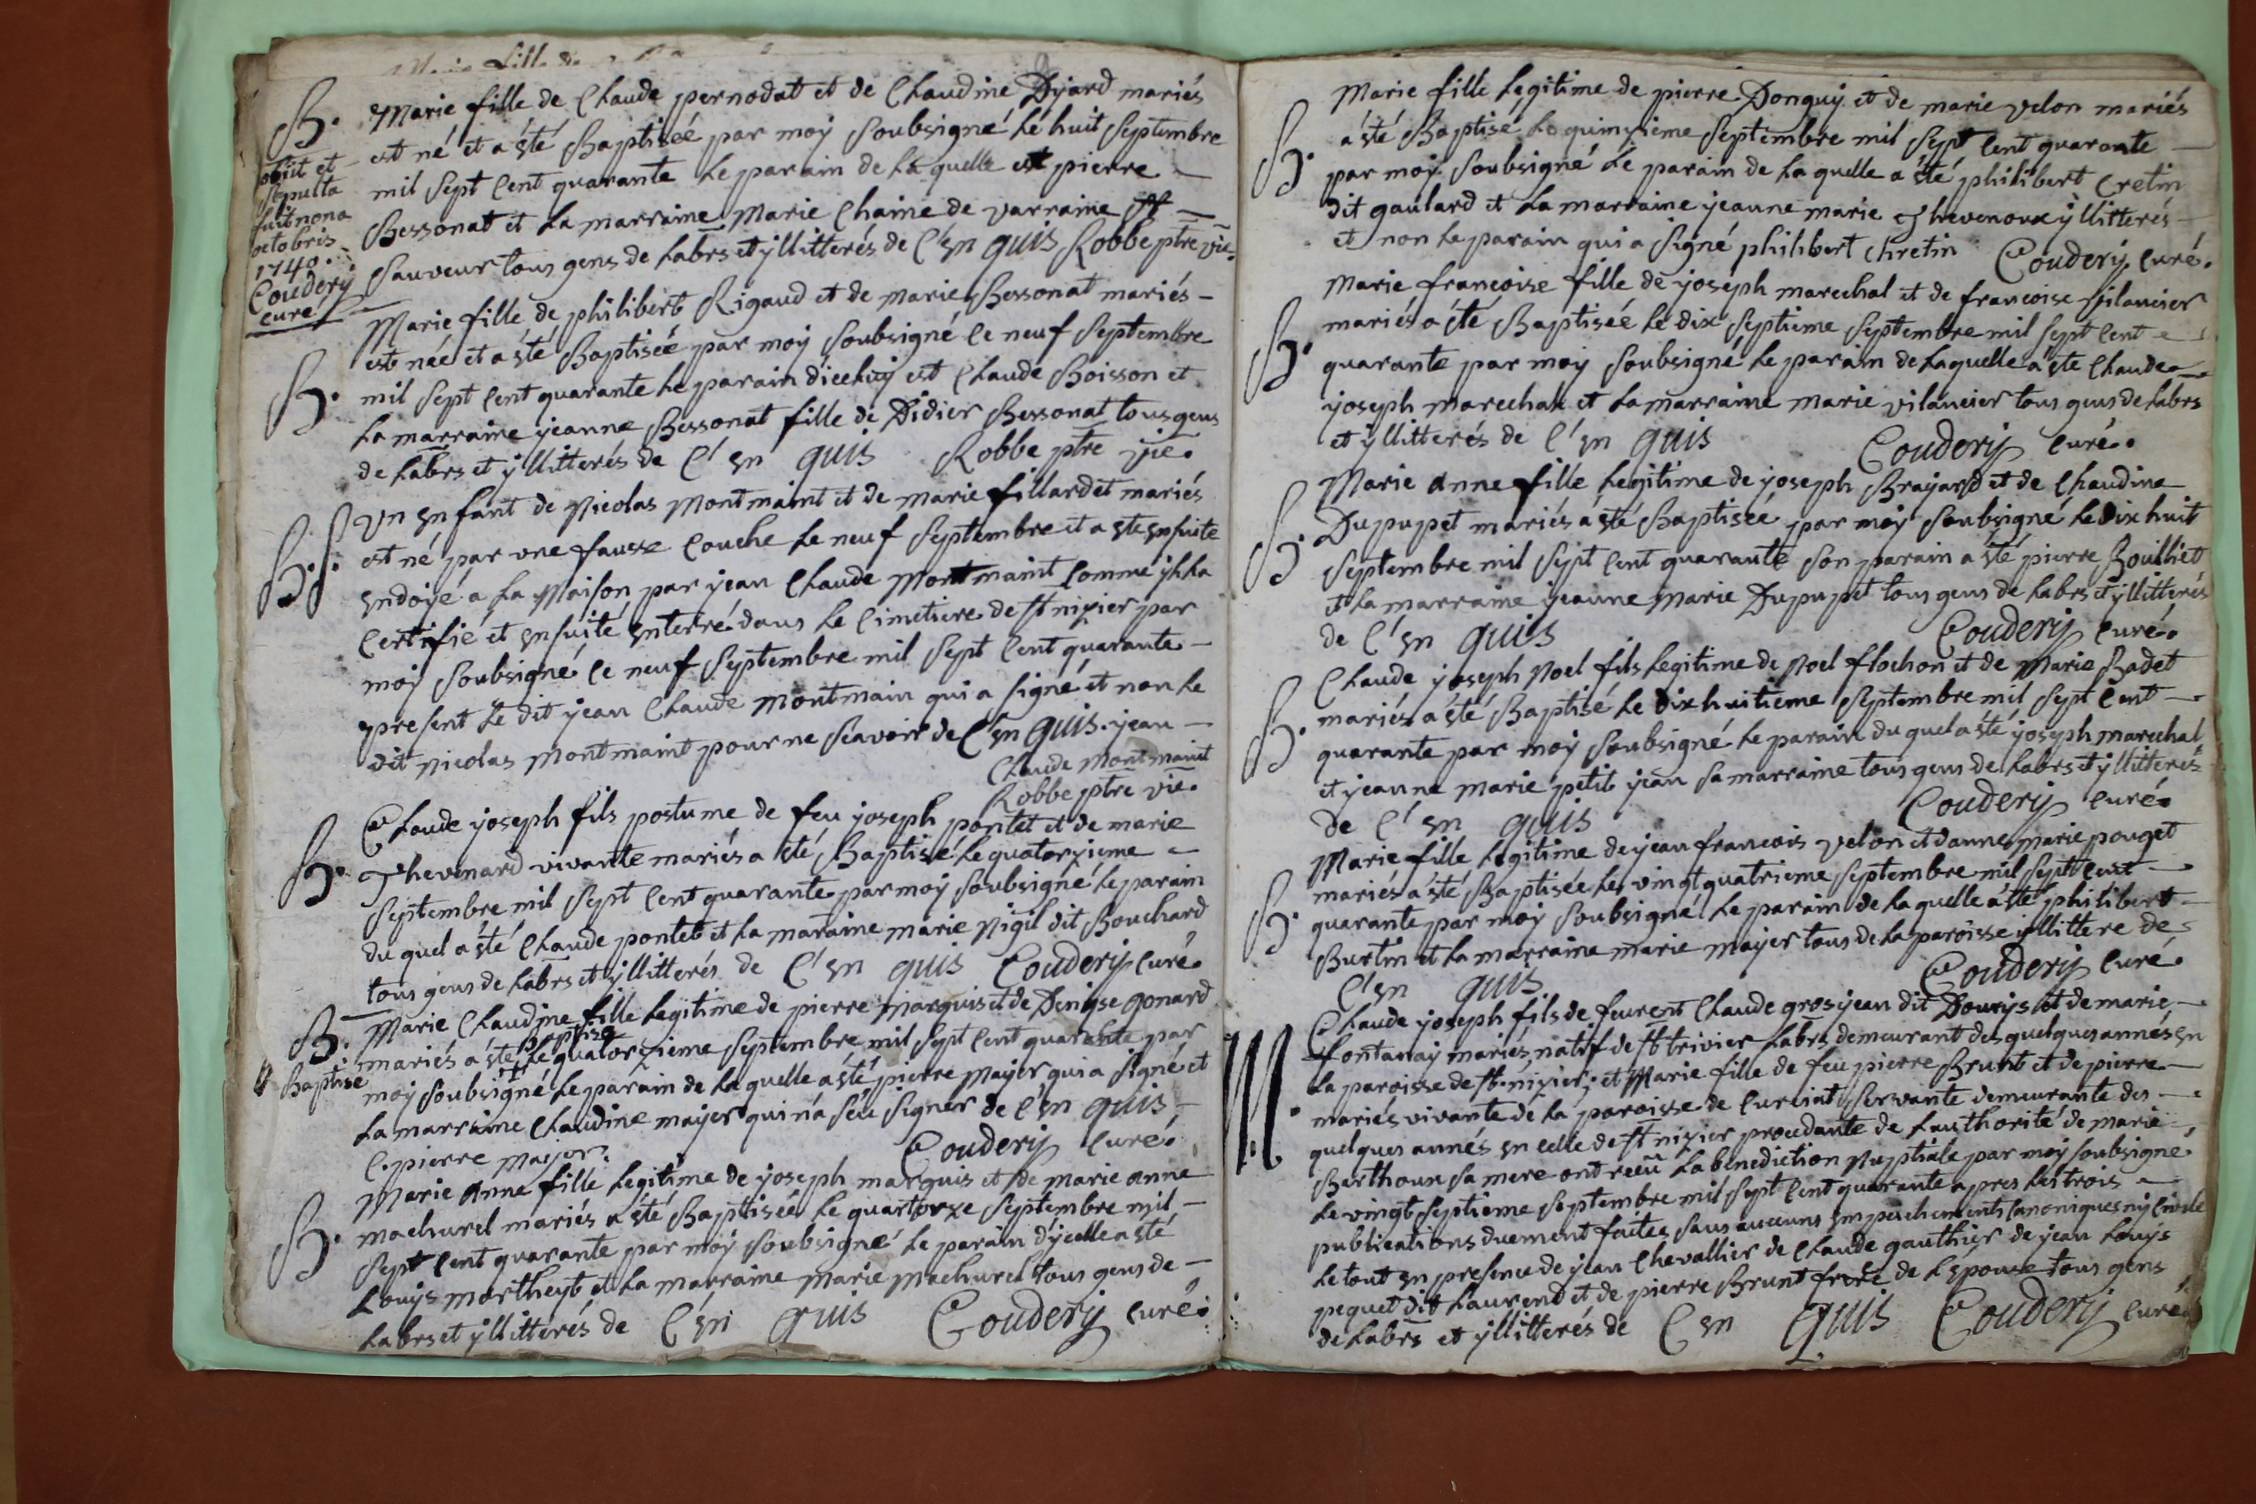 B.
obiit et
sepulta
fuit nona
octobris
1740.
Coudery
curé
Marie fille de Claude pernodat et de Claudine Dyard mariés
est né et a été Baptiseé par moy soubsigné Le huit Septembre
mil Sept Cent quarante Le parain de La quelle est pierre
Bessonat et La marraine Marie Chaine de varraine St
Sauveur tous gens de Labrs et yllitterés de C'en quis Robbe ptre vic.
B.
Marie fille de philibert Rigaud et de Marie Bessonat mariés
est née et a été Baptisée par moy soubsigné Le neuf Septembre
mil Sept Cent quarante Le parain d'icelluy est Claude Boisson et
La marraine yeanne Bessonat fille de Didier Bessonat tous gens
de Labrs et yllitterés de C'en quis Robbe ptre vic.
B. S.
Un enfant de Nicolas Montmaint et de Marie fillardet mariés
est né par une fausse Couche Le neuf Septembre et a été ensuite
endoyé a La Maison par yean Claude Montmaint Comme il La
Certifié et ensuite enterré dans Le Cimetiere de St nizier par
moy soubsigné Le neuf Septembre mil Sept Cent quarante
present Le dit yean Claude Montmain qui a signé et non Le
dit nicolas Montmaint pour ne Scavoir de C'en quis. yean
Claude Montmaint
Robbe ptre vic.
B.
Claude yoseph fils postume de feu yoseph pontet et de marie
Thevenard vivante mariés a été Baptisé Le quatorzieme
Septembre mil Sept Cent quarante par moy soubsigné Le parain
du quel a été Claude pontet et La maraine marie Nigil dit Bouchard
tous gens de Labrs et yllitterés de C'en quis Coudery curé
B.
Baptise
Marie Claudine fille Legitime de pierre marquis et de Denise Gonard
Baptise
mariés a été Le quatorzieme Septembre mil Sept Cent quarante par
moy soubsigné Le parain de La quelle a été pierre Mayer qui a signé et
La marraine Claudine mayer qui n'a séu signer de C'en quis
C. pierre Maior. Coudery curé.
B.
Marie Anne fille Legitime de yoseph marquis et de Marie Anne
machurel mariés a été Baptisée Le quartorze Septembre mil
Sept Cent quarante par moy soubsigné Le parain dycelle a été
Louys mortheyt et La marraine Marie Machurel tous gens de
Labrs et yllitterés de C'en quis Coudery curé.
B.
Marie fille Legitime de pierre Donguy et de marie velon mariés
a été Baptisé Le quinzieme Septembre mil Sept Cent quarante
par moy soubsigné Le parain de La quelle a été philibert Cretin
dit gaulard et La marraine yeanne marie Thevenoux yllitterés
et non Le parain qui a signé philibert chretin Coudery curé.
B.
Marie francoise fille de yoseph marechal et de francoise vilancier
mariés a été Baptiseé Le dix Septieme Septembre mil Sept Cent
quarante par moy soubsigné Le parain de Laquelle a été Claude
yoseph marechal et La marraine marie vilancier tous gens de Labrs
et yllitterés de C'en quis Coudery curé.
B.
Marie Anne fille Legitime de yoseph Brayard et de Claudine
Dupupet mariés a été Baptisée par moy soubsigné Le dix huit
Septembre mil Sept Cent quarante son parain a été pierre Bouilliet
et La marraine yeanne Marie Dupupet tous gens de Labrs et yllitterés
de C'en quis Coudery curé.
B.
Claude yoseph Noel fils Legitime de Noel flochon et de Marie Badet
mariés a été Baptisé Le dix huitieme Septembre mil Sept Cent
quarante par moy soubsigné Le parain du quel a été yoseph marechal
et yeanne marie petit yean sa marraine tous gens de Labrs et yllitterés
de C'en quis Coudery curé.
B.
Marie fille Legitime de yean francois velon et danne marie pouget
mariés a été Baptisée Le vingt quatrieme Septembre mil Sept Cent
quarante par moy soubsigné Le parain de La quelle a été philibert
Burtin et La marraine marie mayer tous de La paroisse yllittere de
C'en quis Coudery curé.
M.
Claude yoseph fils de feu Claude gros yean dit Dourys et de marie
fontanay mariés, natif de St trivier Labrs demeurant des quelques annés en
La paroisse de St. nizier; et Marie fille de feu pierre Brunt et de pierre
mariés vivante de La paroisse de Curciat Servante demeurante des
quelques annés en celle de St nizier procedante de L'authorité de marie
Berthoux sa mere ont receu La benediction Nuptiale par moy soubsigné
Le vingt Septieme Septembre mil Sept Cent quarante apres Les trois
publications duement faites sans aucuns empechements canoniques ny Civile
Le tout en presence de yean Chevallier de Claude gauthier de yean Louys
pequet dit Laurend et de pierre Brunt frere de L'epouse tous gens
de Labrs et yllitterés de C'en quis Coudery curé.